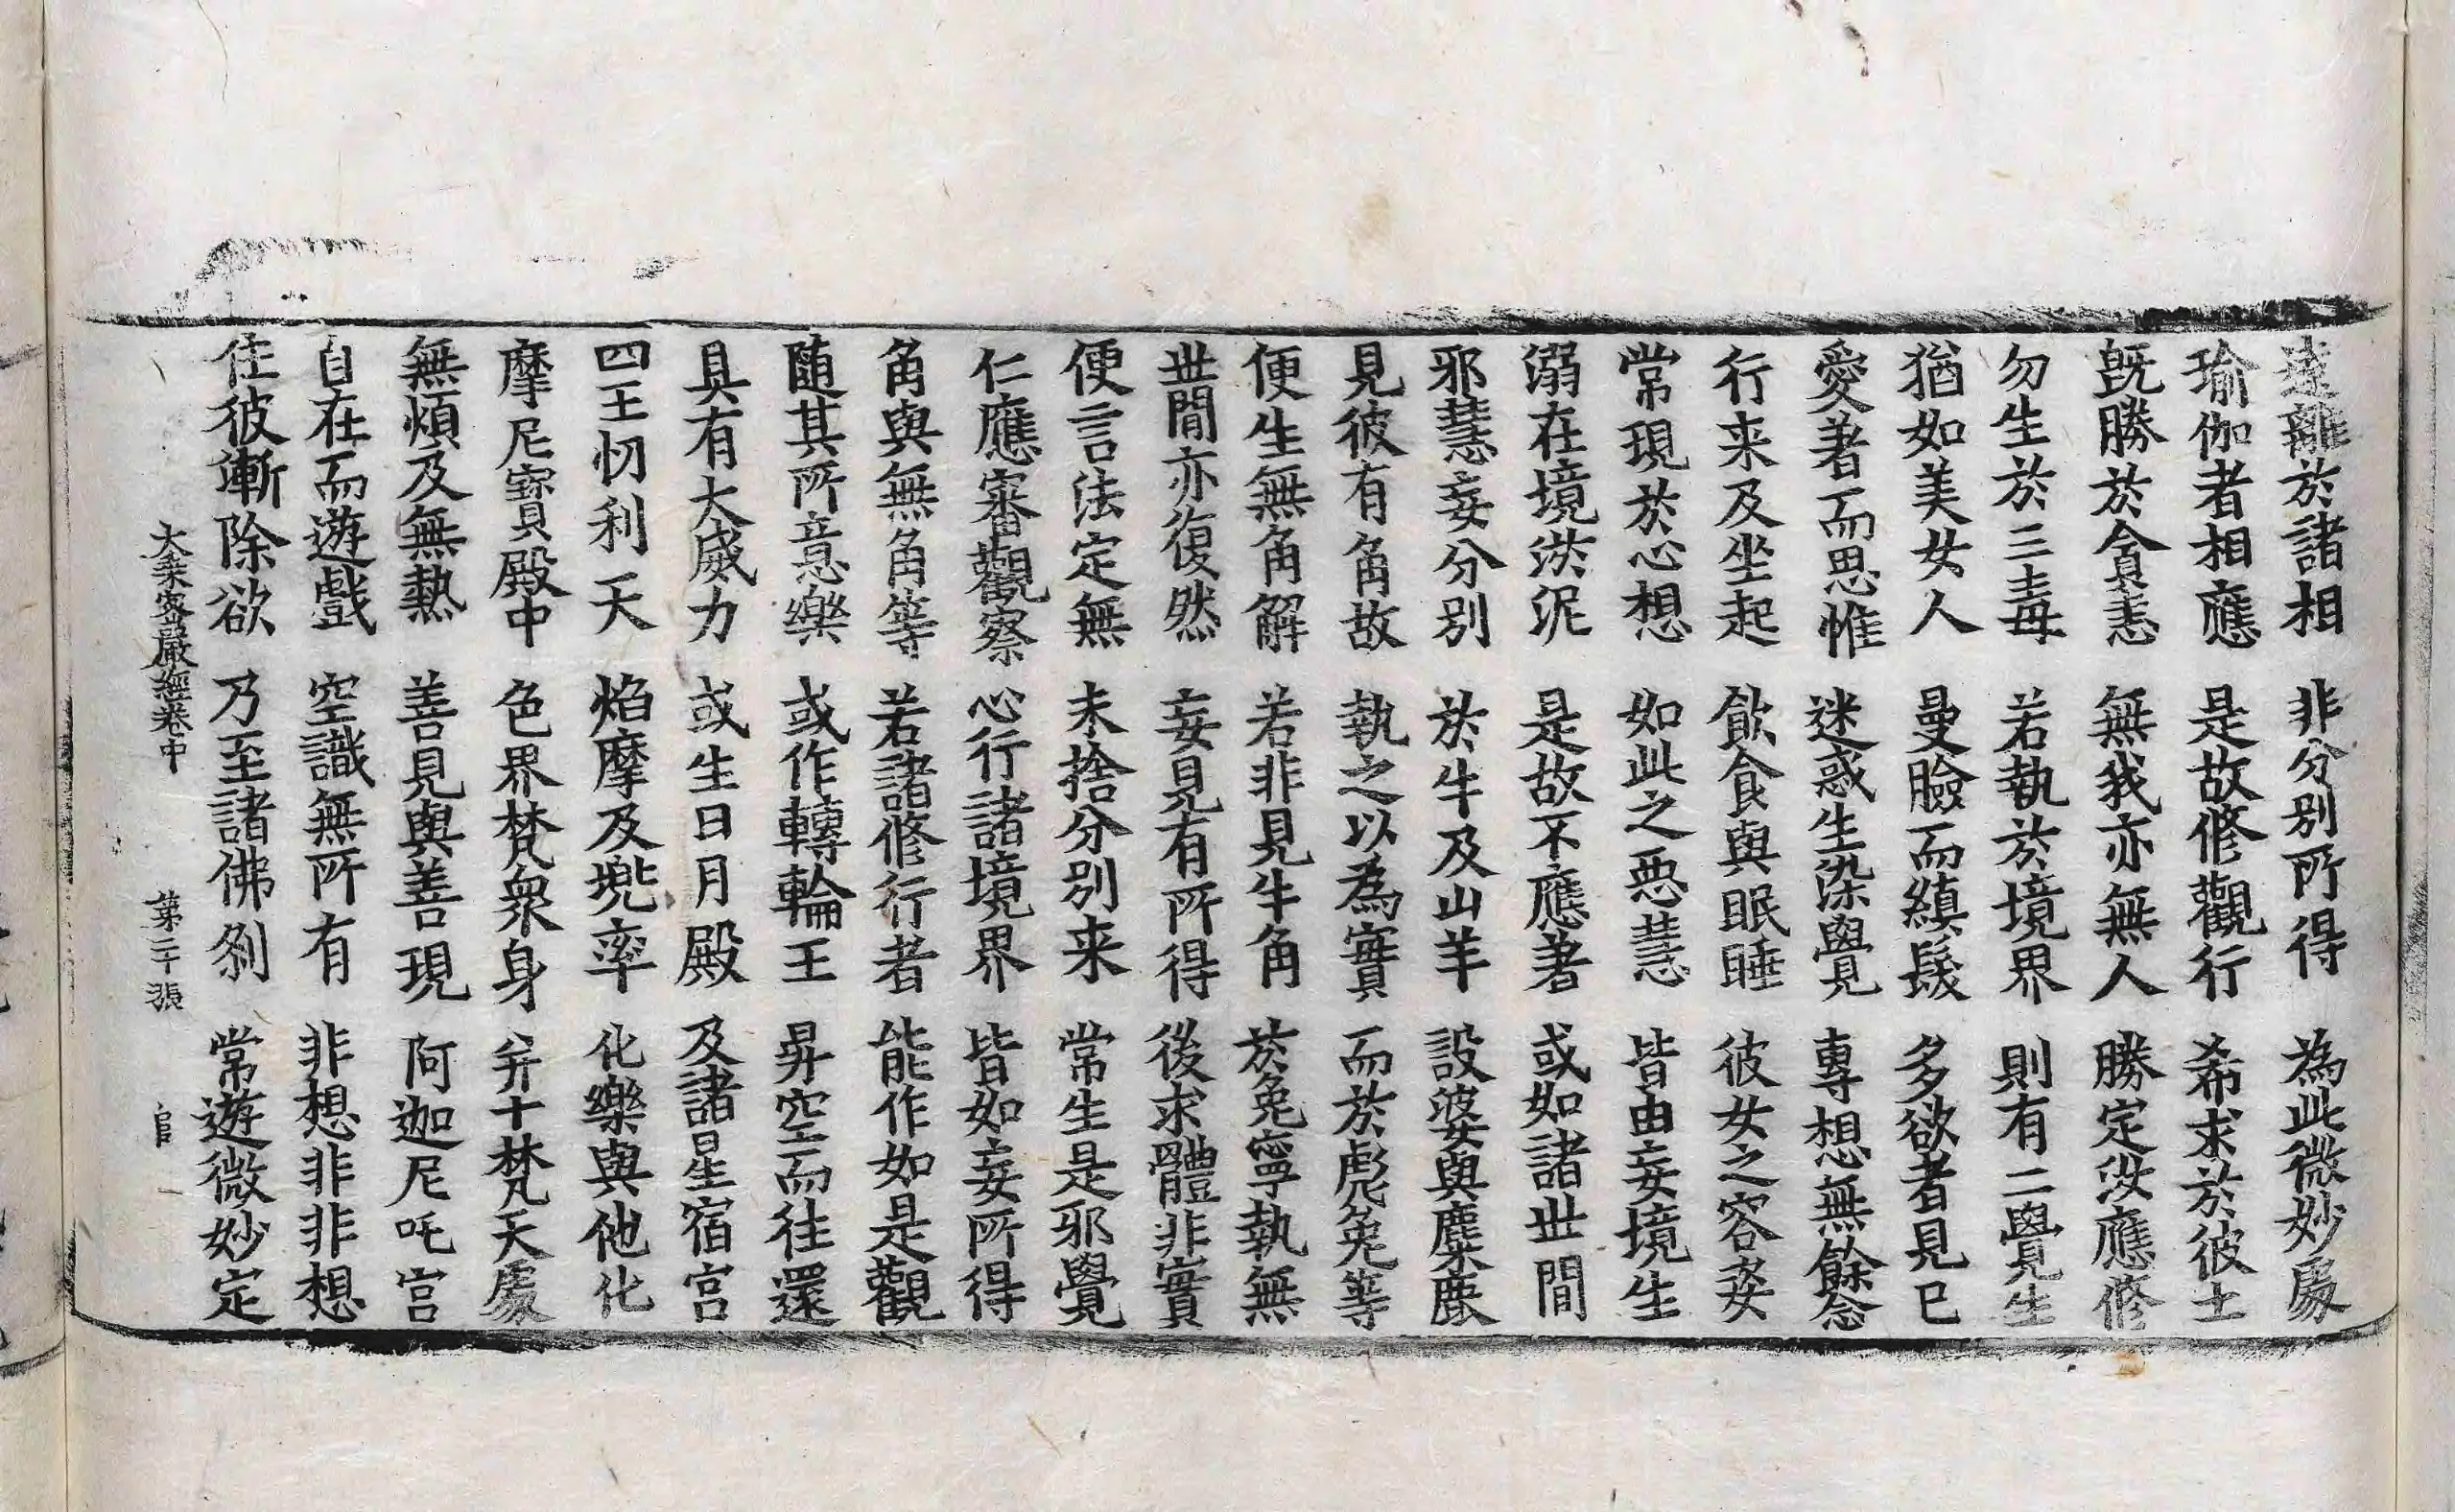 遠離於諸相　非分別所得　為此微妙處
瑜伽者相應　是故修觀行　希求於彼土
既勝於貪恚　無我亦無人　勝定汝應修
勿生於三毒　若執於境界　則有二覺生
猶如美女人　曼臉而縝髮　多欲者見已
愛著而思惟　迷惑生染覺　專想無餘念
行来及坐起　飲食與眠睡　彼女之容姿
常現於心想　如此之惡慧　皆由妄境生
溺在境淤泥　是故不應著　或如諸世間
邪慧妄分別　於牛及山羊　設婆與麋鹿
見彼有角故　執之以為實　而於彪兔等
便生無角解　若非見牛角　於兔寧執無
世間亦復然　妄見有所得　後求體非實
便言法定無　未捨分別来　常生是邪覺
仁應審觀察　心行諸境界　皆如妄所得
角與無角等　若諸修行者　能作如是觀
随其所意樂　或作轉輪王　昇空而往還
具有大威力　或生日月殿　及諸星宿宮
四王忉利天　焰摩及兜率　化樂與他化
摩尼寶殿中　色界梵衆身　并十梵天處
無煩及無熱　善見與善現　阿迦尼吒宮
自在而遊戲　空識無所有　非想非非想
住彼漸除欲　乃至諸佛刹　常遊微妙定
大乘密嚴經卷中　第二十張